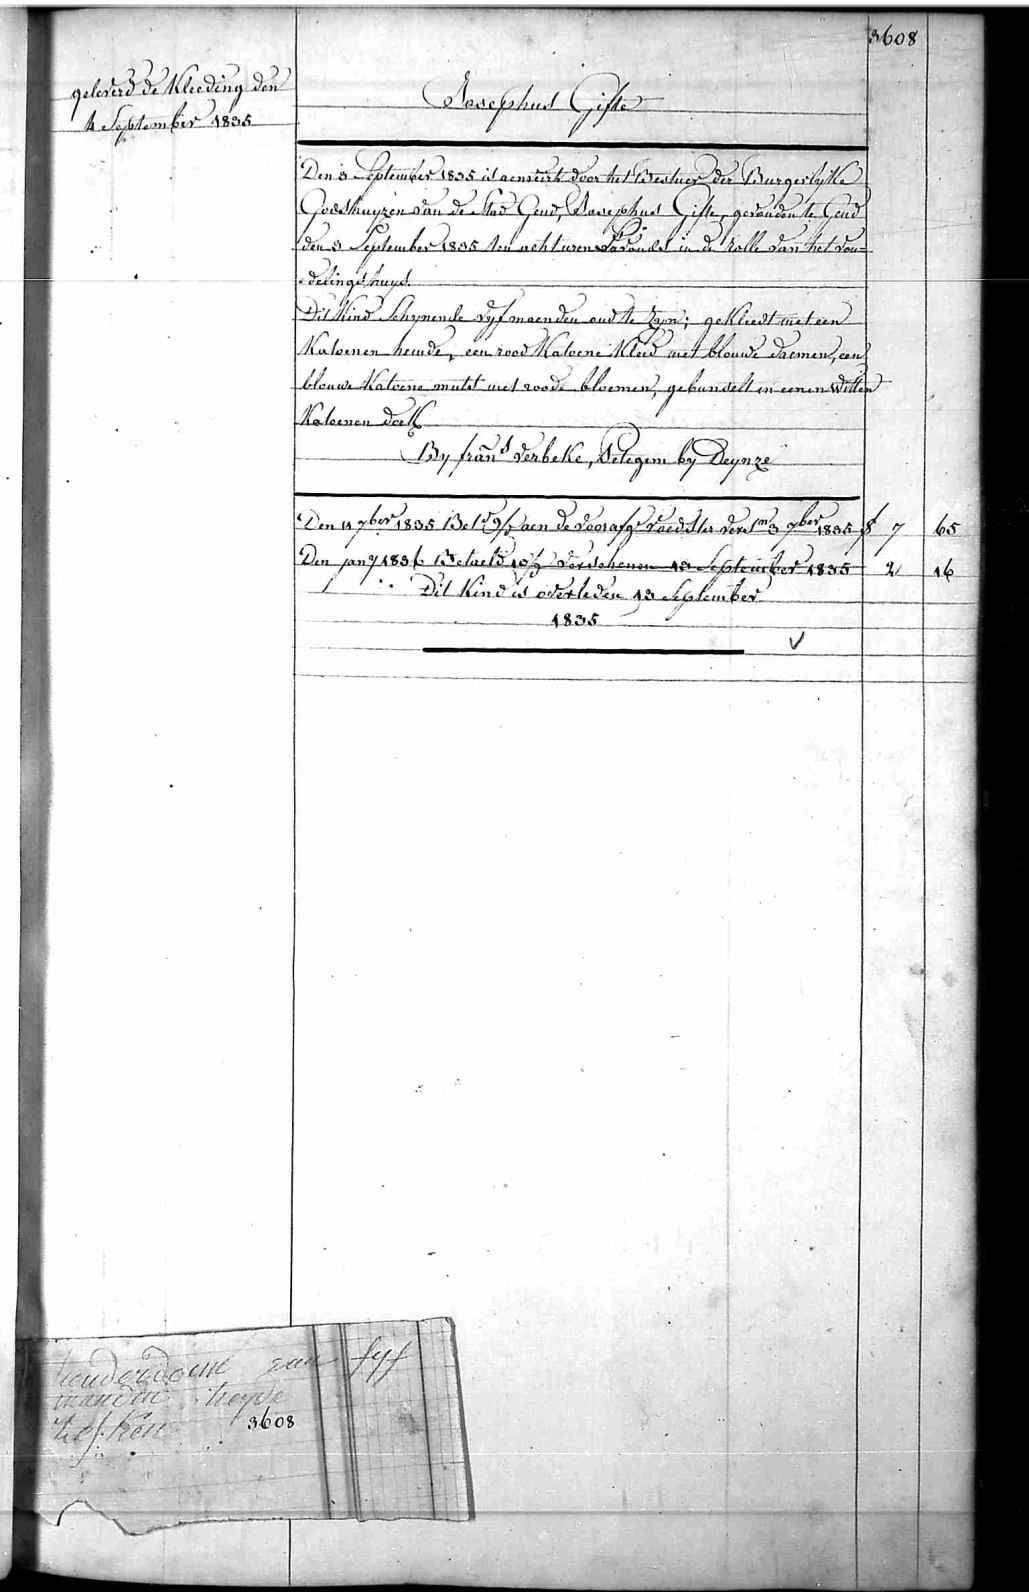 3608
geleverd de Kleeding den
4 September 1835
Josephus Gifte
Den 3 September 1835 is aenveirt door het Bestuer der Burgerlyke
Godshuyzen van de Stad Gend, Josephus Gifte, gevonden te Gend
den 3 September 1835 ten acht uren S'avonds in de rolle van het von=
delingshuys.
Dit Kind Schynende vyf maenden oud te Zyn; gekleedt met een
Katoenen hemde, een rood Katoene Kleed met blouwe daemen, een
blouwe Katoene mutst met roode bloemen, gebundelt in eenen witten
Katoenen doek
By frans Verbeke, Petegem by Deynze
Den 7ber 1835 Bet aen de voorafge voedster vers 3 7ber 1835 7 65
Den jany 1836 Betaeld verschenen 13 September 1835 2 16
Dit Kind is overleden 13 September
1835
fyf
3608